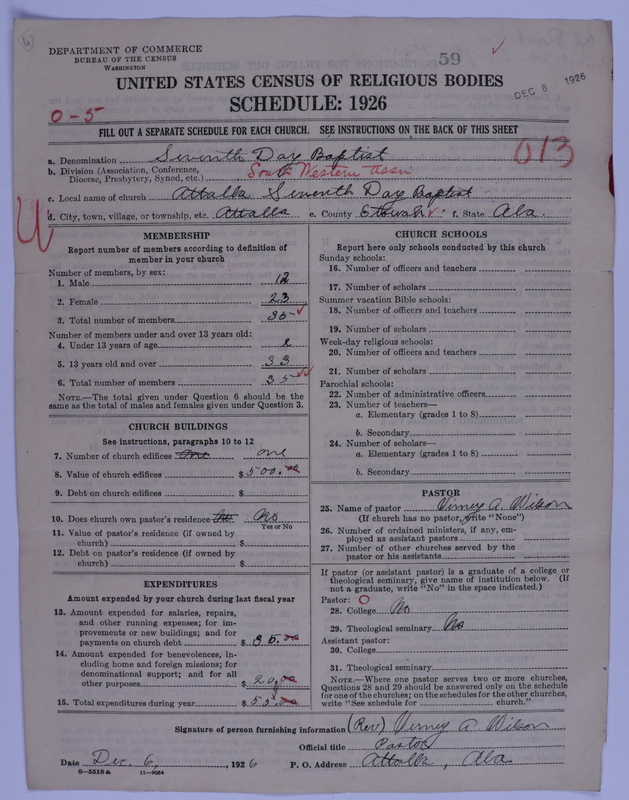 DEPARTMENT OF COMMERCE
BUREAU OF THE CENSUS
WASHINGTON
59
UNITED STATES CENSUS OF RELIGIOUS BODIES
SCHEDULE: 1926
DEC 8 1926
0-5
FILL OUT A SEPARATE SCHEDULE FOR EACH CHURCH. SEE INSTRUCTIONS ON THE BACK OF THIS SHEET
013
a. Denomination Seventh Day Baptist
b. Division (Association, Conference, Diocese, Presbytery, Synod, etc.) South Western Assn
c. Local name of church Attalla Seventh Day Baptist
d. City, town, village, or township, etc. Attalla e. County Etowah f. State Ala.
MEMBERSHIP
Report number of members according to definition of
member in your church
Number of members, by sex:
1. Male 12
2. Female 23
3. Total number of members 35
Number of members under and over 13 years old:
4. Under 13 years of age 2
5. 13 years old and over 33
6. Total number of members 35
NOTE.—The total given under Question 6 should be
same as the total of males and females given under Question 3.
CHURCH BUILDINGS
See instructions, paragraphs 10 to 12
7. Number of church edifices one
8. Value of church edifices $500.00
9. Debt on church edifices $
10. Does church own pastor's residence No
Yes or No
11. Value of pastor's residence (if owned by
church) $
12. Debt on pastor's residence (if owned by
church) $
EXPENDITURES
Amount expended by your church during last fiscal year
13. Amount expended for salaries, repairs,
and other running expenses; for im-
provements or new buildings; and for
payments on church debt $35.00
14. Amount expended for benevolences, in-
cluding home and foreign missions; for
denominational support; and for all
other purposes $20.00
15. Total expenditures during year $55.00
CHURCH SCHOOLS
Report here only schools conducted by this church
Sunday schools:
16. Number of officers and teachers
17. Number of scholars
Summer vacation Bible schools:
18. Number of officers and teachers
19. Number of scholars
Week-day religious schools:
20. Number of officers and teachers
21. Number of scholars
Parochial schools:
22. Number of administrative officers
23. Number of teachers—
a. Elementary (grades 1 to 8)
b. Secondary
24. Number of scholars—
a. Elementary (grades 1 to 8)
b. Secondary
PASTOR
25. Name of pastor Verney A. Wilson
(If church has no pastor, write "None")
26. Number of ordained ministers, if any, em-
ployed as assistant pastors
27. Number of other churches served by the
pastor or his assistants
If pastor (or assistant pastor) is a graduate of a college or
theological seminary, give name of institution below. (If
not a graduate, write "No" in the space indicated.)
Pastor:
28. College No
29. Theological seminary No
Assistant pastor:
30. College
31. Theological seminary
NOTE.—Where one pastor serves two or more churches,
Questions 28 and 29 should be answered only on the schedule
for one of the churches; on the schedules for the other churches,
write "See schedule for church."
Signature of person furnishing information (Rev) Verney A Wilson
Official title Pastor
Date Dec. 6, 1926 P. O. Address Attalla, Ala.
8-5518a 11-9054